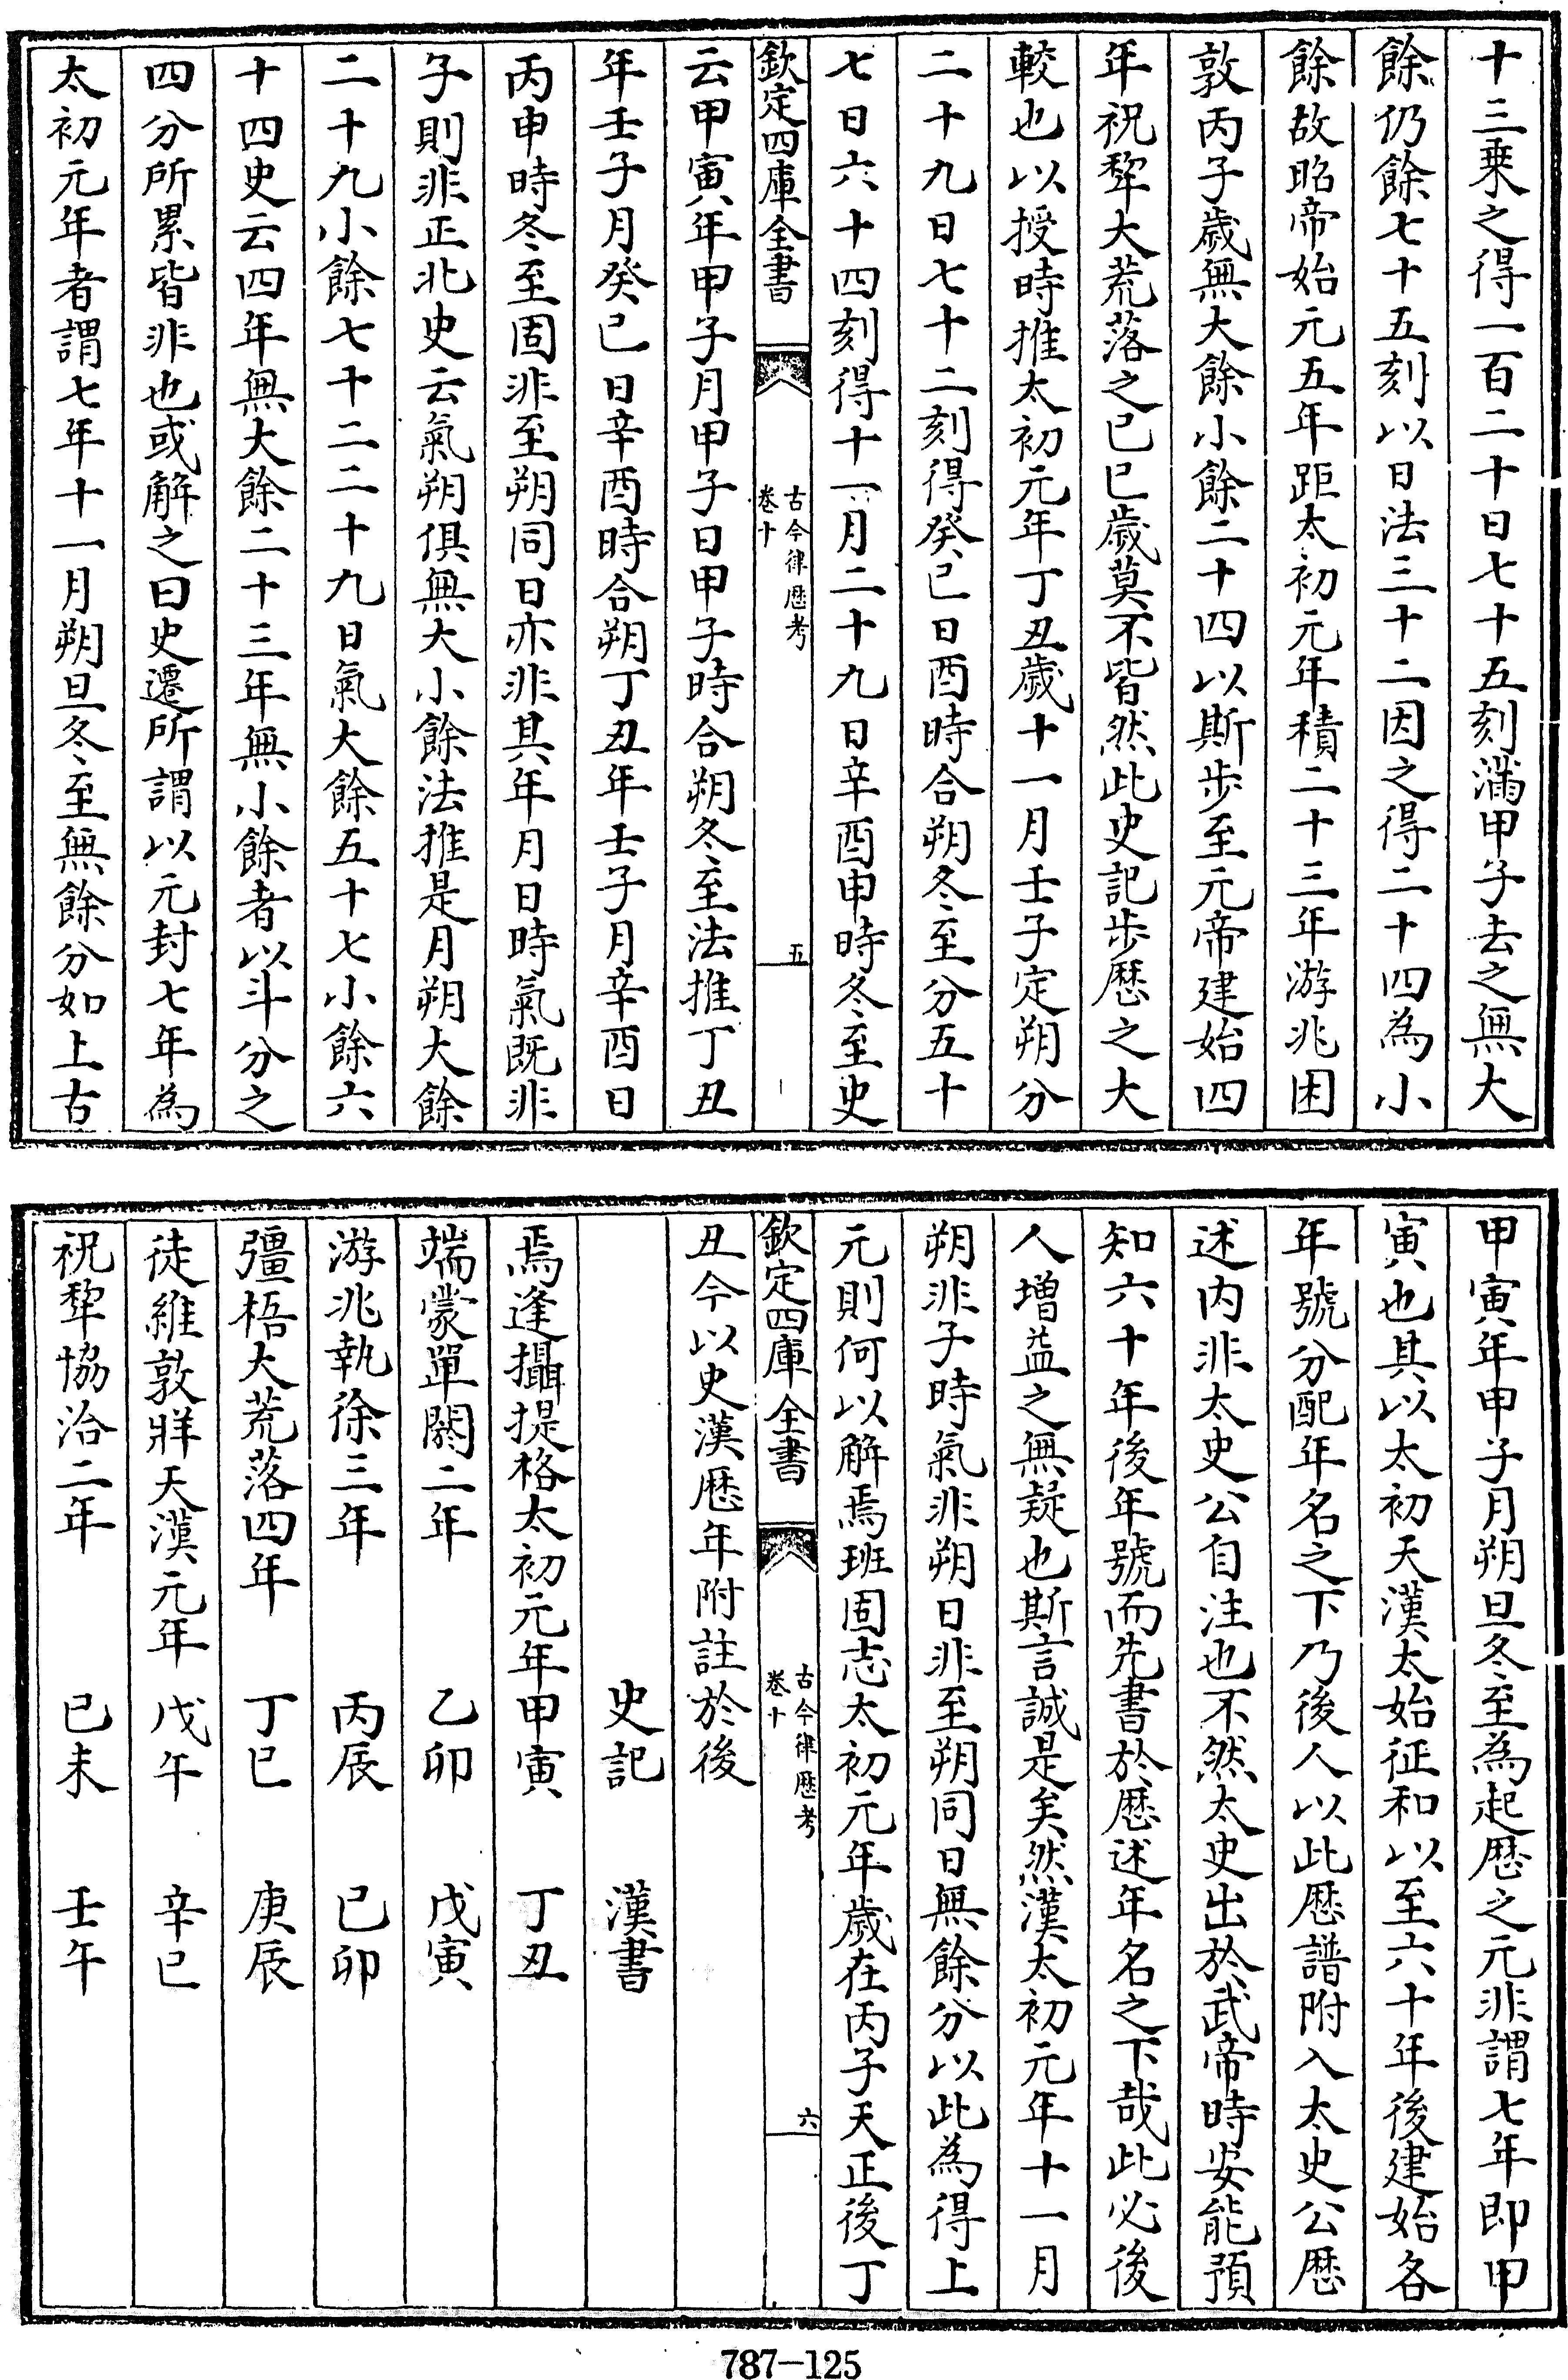 十三乘之得一百二十日七十五刻滿甲子去之無大
餘仍餘七十五刻以日法三十二因之得二十四為小
餘故昭帝始元五年距太初元年積二十三年游兆困
敦丙子歲無大餘小餘二十四以斯步至元帝建始四
年祝犂大荒落之已巳歲莫不皆然此史記步厯之大
較也以授時推太初元年丁丑歲十一月壬子定朔分
二十九日七十二刻得癸已日酉時合朔冬至分五十
七日六十四刻得十一月二十九日辛酉申時冬至史
欽定四庫全書
古今律厯考
卷十
五
云甲寅年甲子月甲子日甲子時合朔冬至法推丁丑
年壬子月癸已日辛酉時合朔丁丑年壬子月辛酉日
丙申時冬至固非至朔同日亦非其年月日時氣既非
子則非正北史云氣朔俱無大小餘法推是月朔大餘
二十九小餘七十二二十九日氣大餘五十七小餘六
十四史云四年無大餘二十三年無小餘者以斗分之
四分所累皆非也或解之曰史遷所謂以元封七年為
太初元年者謂七年十一月朔旦冬至無餘分如上古
甲寅年甲子月朔旦冬至為起厯之元非謂七年即甲
寅也其以太初天漢太始征和以至六十年後建始各
年號分配年名之下乃後人以此厯譜附入太史公厯
述内非太史公自注也不然太史出於武帝時安能預
知六十年後年號而先書於厯述年名之下哉此必後
人増益之無疑也斯言誠是矣然漢太初元年十一月
朔非子時氣非朔日非至朔同日無餘分以此為得上
元則何以解焉班固志太初元年歲在丙子天正後丁
欽定四庫全書
古今律厯考
卷十
六
丑今以史漢厯年附註於後
史記 漢書
焉逢攝提格太初元年甲寅 丁丑
端蒙單閼二年 乙卯 戊寅
游兆執徐三年 丙辰 已卯
彊梧大荒落四年 丁巳 庚辰
徒維敦牂天漢元年 戊午 辛巳
祝犂協洽二年 已未 壬午
787-125